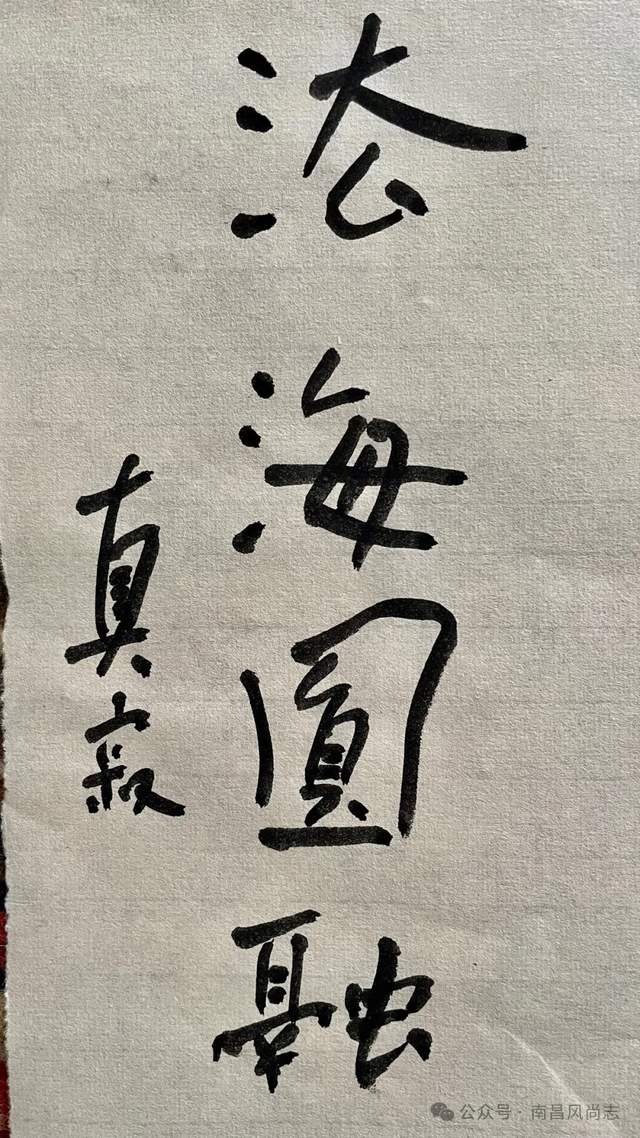 法海圓融
真寂
公众号·南昌风尚志